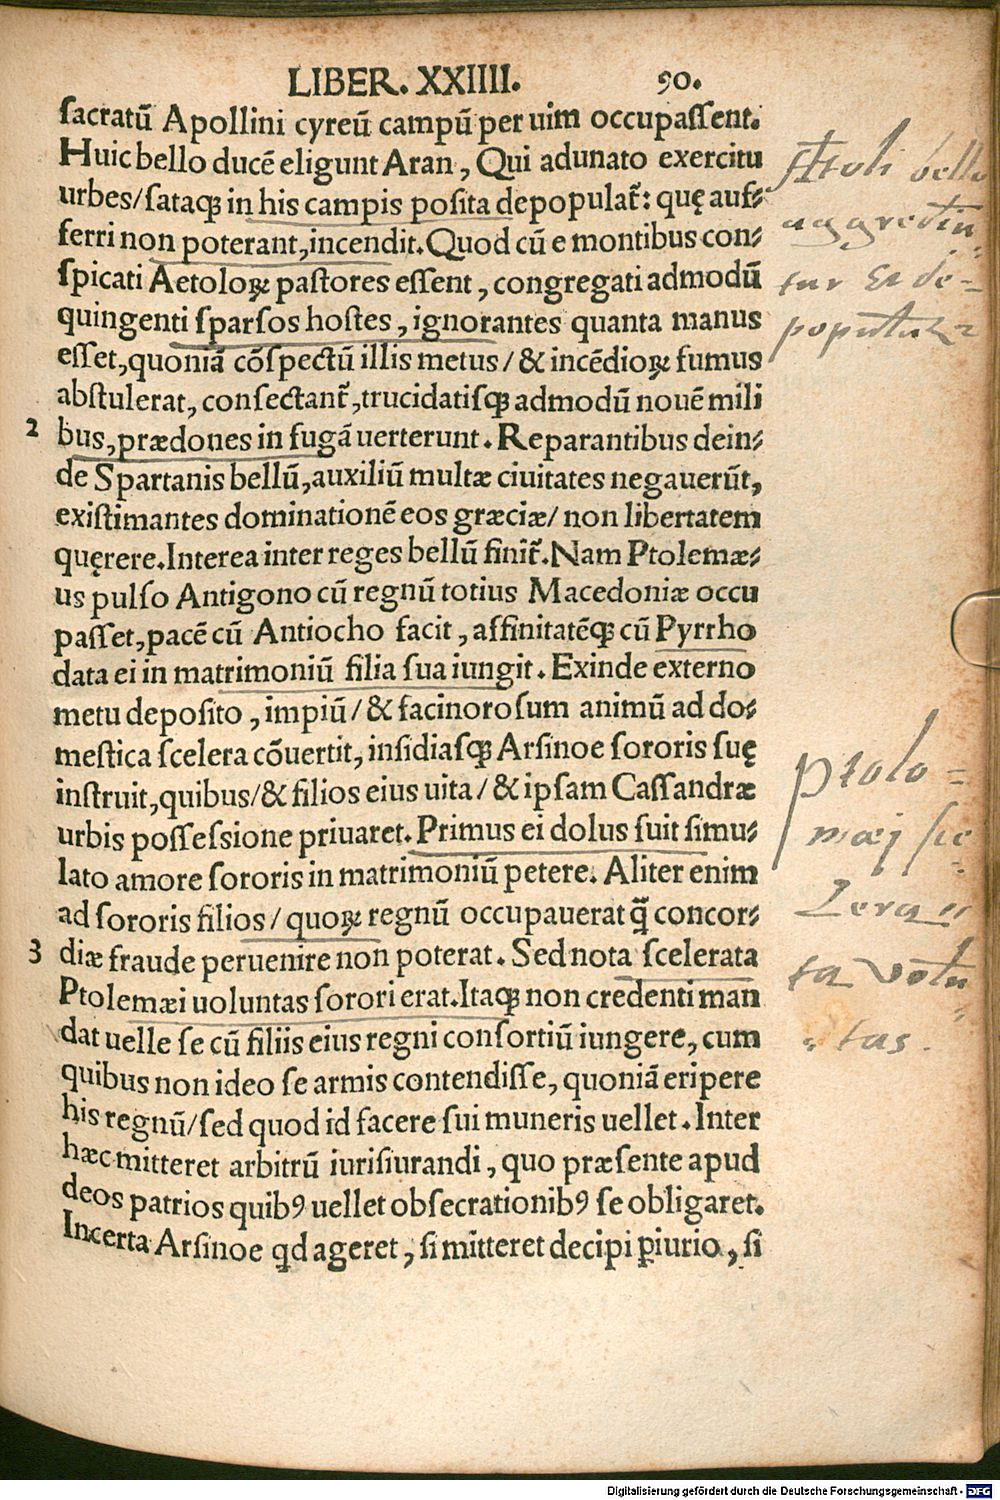 LIBER. XXIIII. 90.
ſacratū Apollini cyreū campū per uim occupaſſent.
Huic bello ducē eligunt Aran, Qui adunato exercitu
urbes/ſataqꝫ in his campis poſita depopulat᷑: quę auf⸗
ferri non poterant, incendit. Quod cū e montibus con⸗
ſpicati Aetoloꝝ paſtores eſſent, congregati admodū
quingenti ſparſos hoſtes, ignorantes quanta manus
eſſet, quoniā cōſpectū illis metus/ & incēdioꝝ fumus
abſtulerat, conſectant᷑, trucidatiſqꝫ admodū nouē mili
2 bus, prædones in fugā uerterunt. Reparantibus dein⸗
de Spartanis bellū, auxiliū multæ ciuitates negauerūt,
exiſtimantes dominationē eos græciæ/ non libertatem
quęrere. Interea inter reges bellū finit᷑. Nam Ptolemæ⸗
us pulſo Antigono cū regnū totius Macedoniæ occu
paſſet, pacē cū Antiocho facit, affinitatēqꝫ cū Pyrrho
data ei in matrimoniū filia ſua iungit. Exinde externo
metu depoſito, impiū/ & facinoroſum animū ad do⸗
meſtica ſcelera cōuertit, inſidiaſqꝫ Arſinoe ſororis ſuę
inſtruit, quibus/ & filios eius uita/ & ipſam Caſſandræ
urbis poſſeſsione priuaret. Primus ei dolus fuit ſimu⸗
lato amore ſororis in matrimoniū petere. Aliter enim
ad ſororis filios/ quoꝝ regnū occupauerat q̄ concor⸗
3 diæ fraude peruenire non poterat. Sed nota ſcelerata
Ptolemæi uoluntas ſorori erat. Itaqꝫ non credenti man
dat uelle ſe cū filiis eius regni conſortiū iungere, cum
quibus non ideo ſe armis contendiſſe, quoniā eripere
his regnū/ ſed quod id facere ſui muneris uellet. Inter
hæc mitteret arbitrū iuriſiurandi, quo præſente apud
deos patrios quibꝰ uellet obſecrationibꝰ ſe obligaret.
Incerta Arſinoe qd ageret, ſi mitteret decipi ꝑiurio, ſi
Ætoli bello
aggrediu⸗
tur Et de⸗
populat᷑
Ptolo⸗
mæj ſce⸗
lera
ta volu
tas.
Digitalisierung gefördert durch die Deutsche Forschungsgemeinschaft - DFG